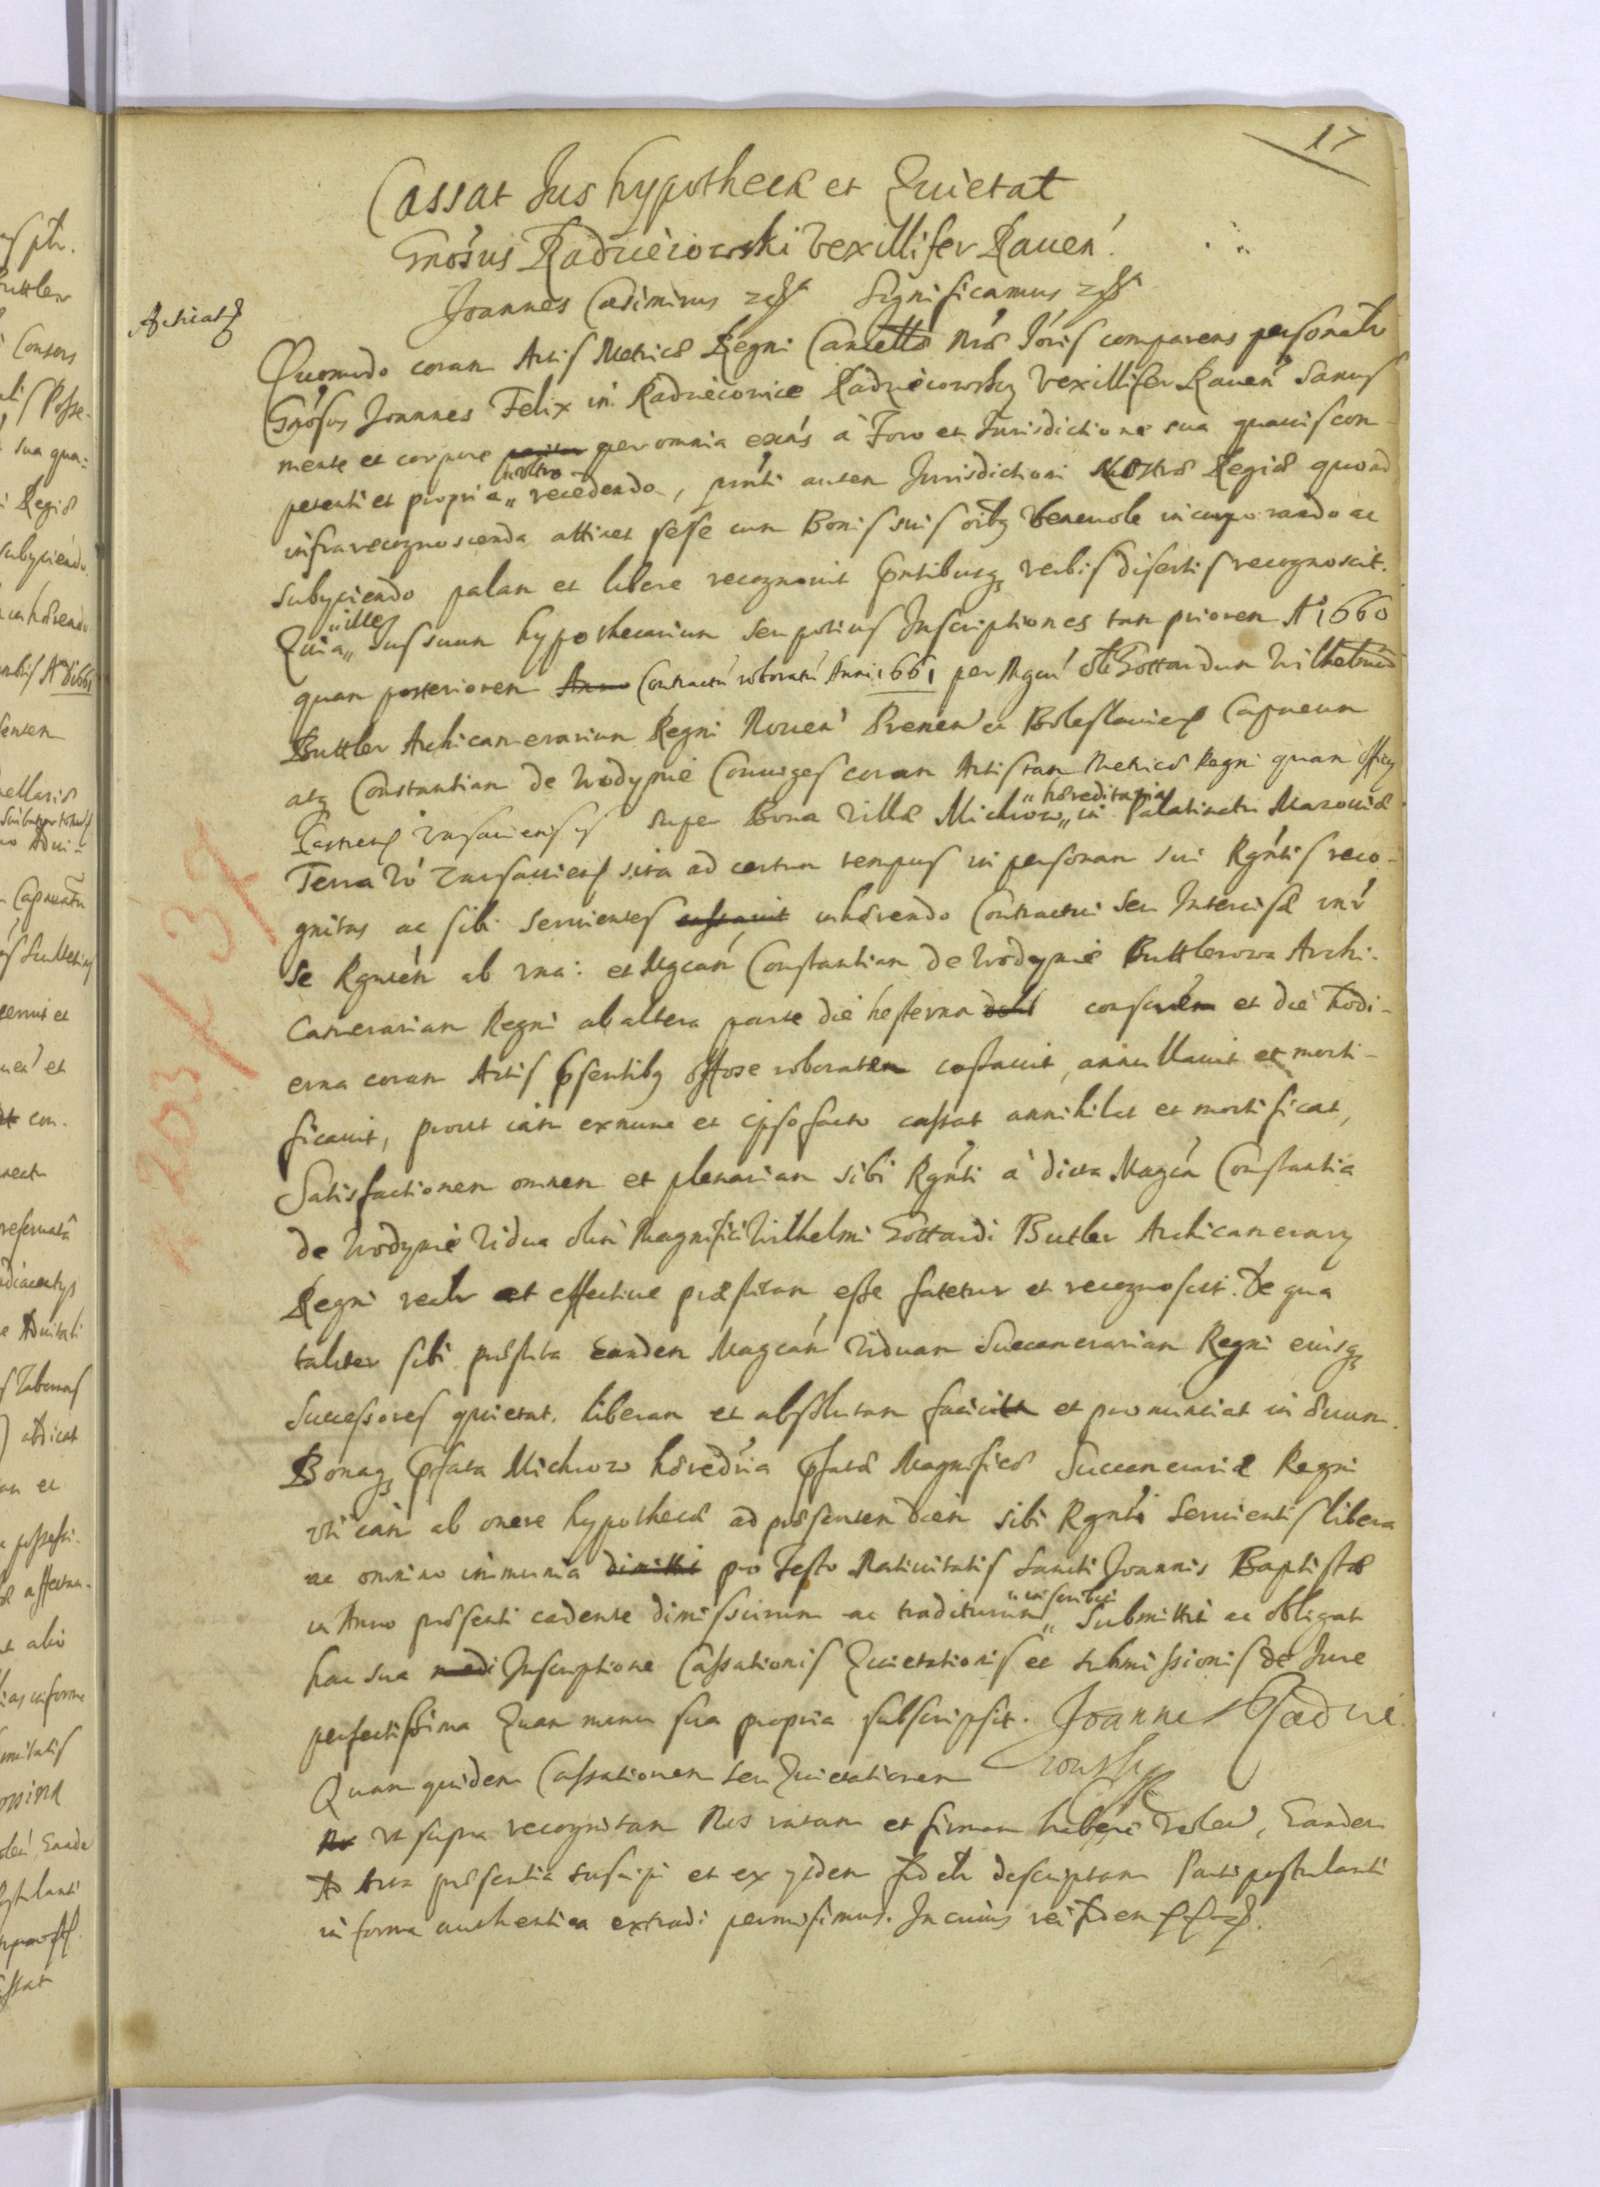 17
Cassat Jus hypothecæ et Quietat
Gnosus Radzieiowski Vexillifer Rauen
Joannes Casimirus Significamus
Quomodo coram Actis Metrices Regni Cancellæ Nræ Joris comparens personalr
Gnosus Joannes Felix in Radzieiowice Radzieiowsky Vexillifer Rauen Sanus
mente et corpore per omnia exñs a Foro et Jurisdictione sua quauis com-
petenti et propria recedendo, pnti autem Jurisdictioni Nostræ Regiæ quoad
infrarecognoscenda attinet sese cum Bonis suis oibq beneuole incorporando ac
subyciendo palam et libere recognouit pntibusq verbis disertis recognoscit.
Quia ille Jus suum hypothecarium seu potius Inscriptiones tam priorem A 1660
quam posteriorem Contractu roboratu Anni 1661 per Mgcu ol Gottardum Wilhelmu
Buttler Archicamerarium Regni Nouen Prenen et Boleslauien Capneum
atq Constantiam de Wodynie Coniuges coram Actis tam Metrices Regni quam offi
Castren Varsauiensis super Bona Villæ Michrow hæreditaria in Palatinatu Mazouiæ
Terra vo Varsauien sita ad certum tempus in personam sui Rgntis reco-
gnitas ac sibi seruientes inhærendo Contractui seu Intercisæ intr
se Rgnten ab vna: et Mgcam Constantiam de Wodynie Buttlerowa Archi-
camerariam Regni ab altera parte die hesterna et die hodi-
erna coram Actis psentibq offose roboratem cassauit, annullauit et morti-
ficauit, prout iam exnunc et ipso facto cassat annihilat et mortificat,
Satisfactionem omnem et plenariam sibi Rgnti a dicta Magca Constantia
de Wodynie Vidua olim Magnifici Wilhelmi Gottardi Butler Archicamerary
Regni realr et effectiue præstitam esse fatetur et recognoscit. De qua
taliter sibi præstita Eandem Magcam Viduam Succamerariam Regni eiusq
Successores quietat. liberam et absolutam facit et pronunciat in æuum.
Bonaq pfata Michrow hæredria pfatæ Magnificæ Succamerariæ Regni
vti iam ab onere hypothecæ ad præsentem diem sibi Rgnti Seruientis libera
ac omnino immunia pro Festo Natiuitatis Sancti Joannis Baptistæ
in Anno præsenti cadente dimissurum ac traditurum inscribit Submittit ac obligat
hac sua Inscriptione Cassationis Quietationis et submissionis de Jure
perfectissima Quam manu sua propria subscripsit. Joannes Radzie
iowsky
Quam quidem Cassationem seu Quietationem
vt supra recognitam Nos ratam et firmam haberi volen, Eandem
Actis præsentia suscipi et ex ydem fidelr descriptam Parti postulanti
in forma authentica extradi permisimus. In cuius rei fidem